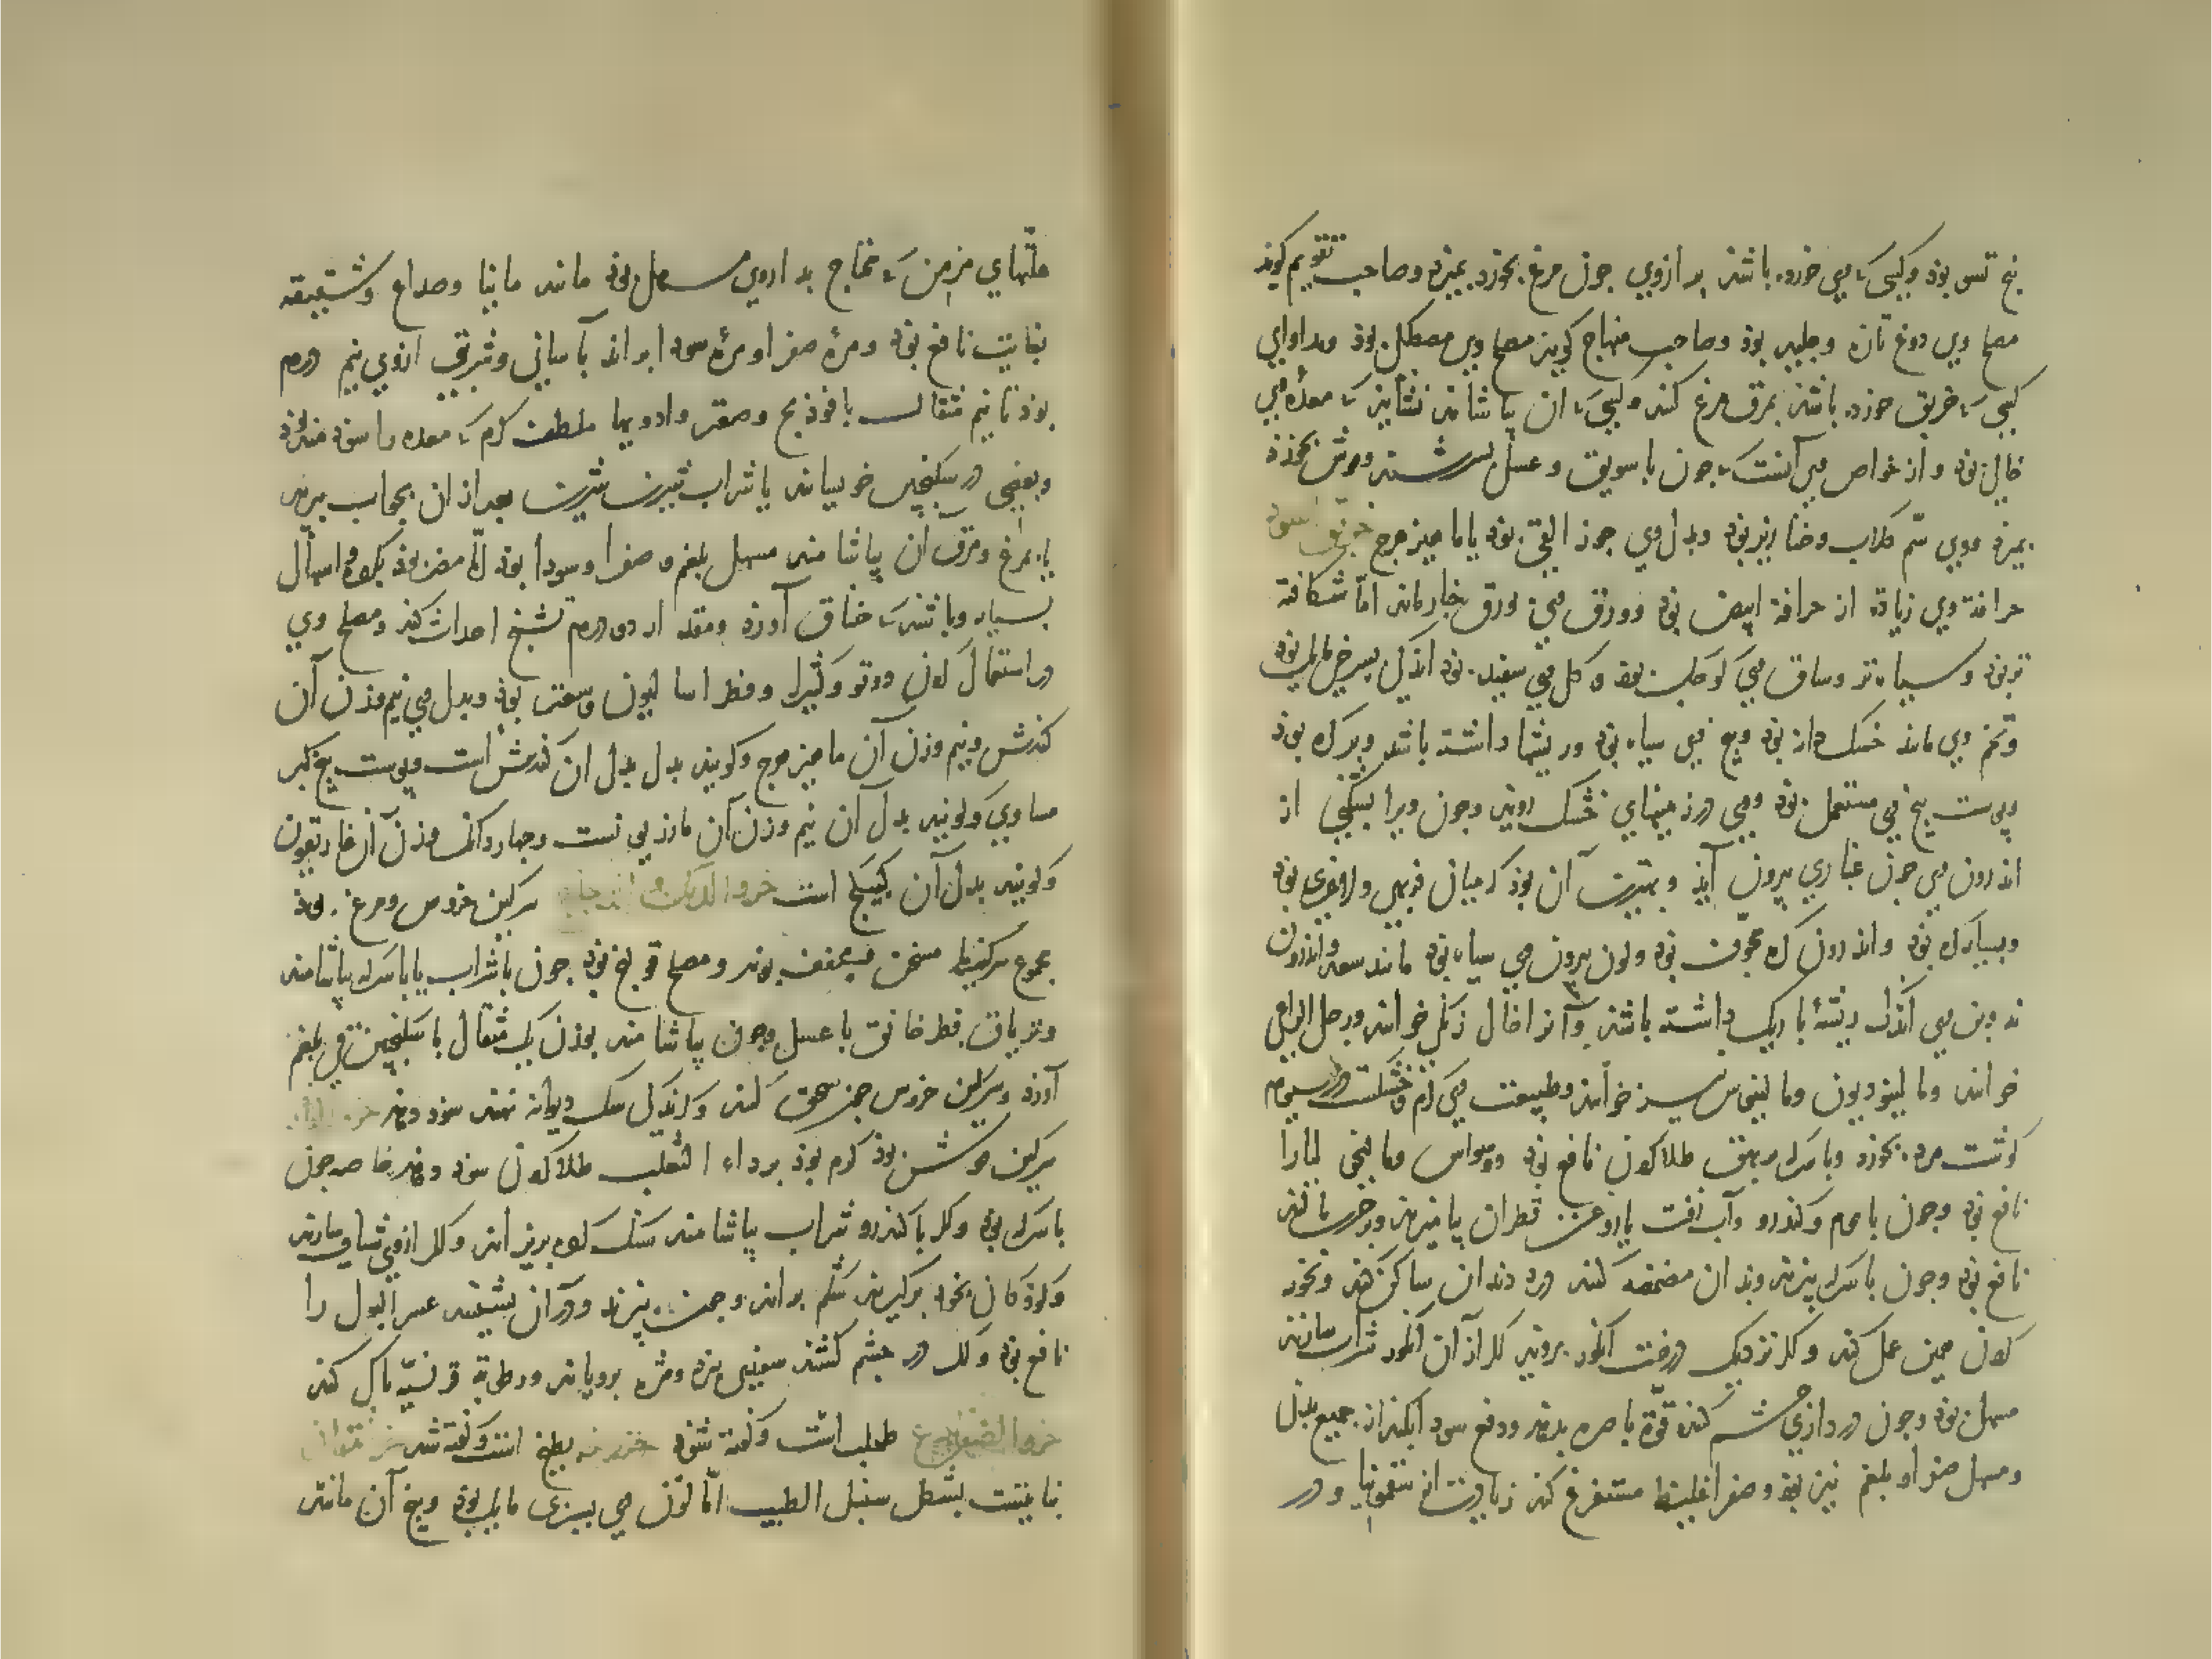 بیخ تس بود و کسی که وی خورده باشد بر ازوی چون مرغ بخورد بمیرد و صاحب تقویم گوید
مصلح وی دوغ تازه و حلیب بود و صاحب منهاج گوید مصلح وی مصطکی بود و مداوای
کسی که خربق خورده باشد بمرق مرغ کنند و کسی که آن بیاشامد نشاید که معده وی
خالی بود و از خواص وی آنست که چون با سویق و عسل بسرشند و موش بخورد
بمیرد و وی سم کلاب و خنازیر بود و بدل وی جوز القی بود یا ماهیزهرج خربق اسود
حرافة وی زیاده از حرافة ابیض بود و ورق وی ورق خیار ماند اما شکافته
تر بود و سیاه تر و ساق وی کوچک بود و گل وی سفید بود اندکی بسرخی مایل بود
و تخم وی مانند خسک دانه بود و بیخ وی سیاه بود و ریشها داشته باشد و بزرگ بود
و پوست بیخ وی مستعمل بود و وی در زمینهای خشک روید و چون ویرا بشکنی از
اندرون وی چون غباری بیرون آید و بهترین آن بود که میان فربهی و لاغری بود
و بسیار گره بود و اندرون گره مجوف بود و لون بیرون وی سیاه بود مانند سعد و اندرون
نه وبن وی اندک ریشهٔ باریک داشته باشد و آنرا خال زنگی خوانند و رجل الراعی
خوانند و مالینودیون و مالینی سیر خوانند و طبیعت وی گرم و خشکست در سیوم
گوشت مرده بخورد و با سرکه بر بهق طلا کردن نافع بود و وسواس و مالیخولیا را
نافع بود و چون با موم و کندر و آب زفت یا روغن قطران بیامیزند و بر جرب مالند
نافع بود و چون با سرکه بپزند و بدان مضمضه کنند درد دندان ساکن کند و بخور
کردن همین عمل کند و گر نزدیک درخت انگور بروید گر از آن انگور شراب سازند
مسهل بود و چون در داروی چشم کنند قوة باصره بدهد و دفع سودا بکند از جمیع بدن
و مسهل صفرا و بلغم نیز بود و صفرا غلیظ مستفرغ کند زیادت از سقمونیا و در
علتهای مزمن که محتاج بداروی مسهل بود مانند مانیا و صداع و شقیقه
بغایت نافع بود و مرهٔ صفرا و مرهٔ سودا براند بآسانی و شربتی ازوی نیم درم
بود تا نیم مثقال با فودنج و صعتر و ادویها ملطف گرم که معده را سود مند بود
و بعضی در سکنجبین خیسانند یا شراب شیرین شربت بعد از آن بجواب بپزند
یا بمرغ و مرق آن بیاشامند مسهل بلغم و صفرا و سودا بود اما مضر بود بگرده و اسهال
بسیار و باشد که خناق آورد و مقدار دو درم تشنج احداث کند و مصلح وی
در استعمال کردن دوقو و کتیرا و فطراسالیون و صعتر بود و بدل وی نیم وزن آن
کندش و نیم وزن آن ماهیزهرج و گویند بدل بدل آن کندش است و پوست بیخ کبر
مساوی و گویند بدل آن نیم وزن آن مازریونست و چهار دانگ وزن آن غاریقون
و گویند بدل آن کبیکج است خرو الدیک و الدجاج سرگین خروس و مرغ بود
مجموع سرگینها مسخن و مجفف بوند و مصلح قولنج بود چون با شراب یا با سرکه بیاشامند
و تریاق فطر خانق با عسل و چون بیاشامند بوزن یک مثقال با سکنجبین قی بلغم
آورد و سرگین خروس چون سحق کنند و بر گزیدگی سگ دیوانه نهند سود دهد خرو الفار
سرگین موش بود گرم بود بر داء الثعلب طلا کردن سود دهد خاصه چون
با سرکه بود و گر با کندر و شراب بیاشامند سنگ گرده بریزاند و گر ازوی شیاف سازند
و کودکان بخود برگیرند شکم براند و چون بپزند و در آن نشینند عسر البول را
نافع بود و گر در چشم کشند سفیدی ببرد و مژه برویاند و رطوبة قرنیه پاک کند
خرو الضفدع طحلب است و گفته شود خربزه بطیخ است و گفته شد
نباتیست بشکل سنبل الطیب اما لون وی بسبزی مایل بود و بیخ آن مانند